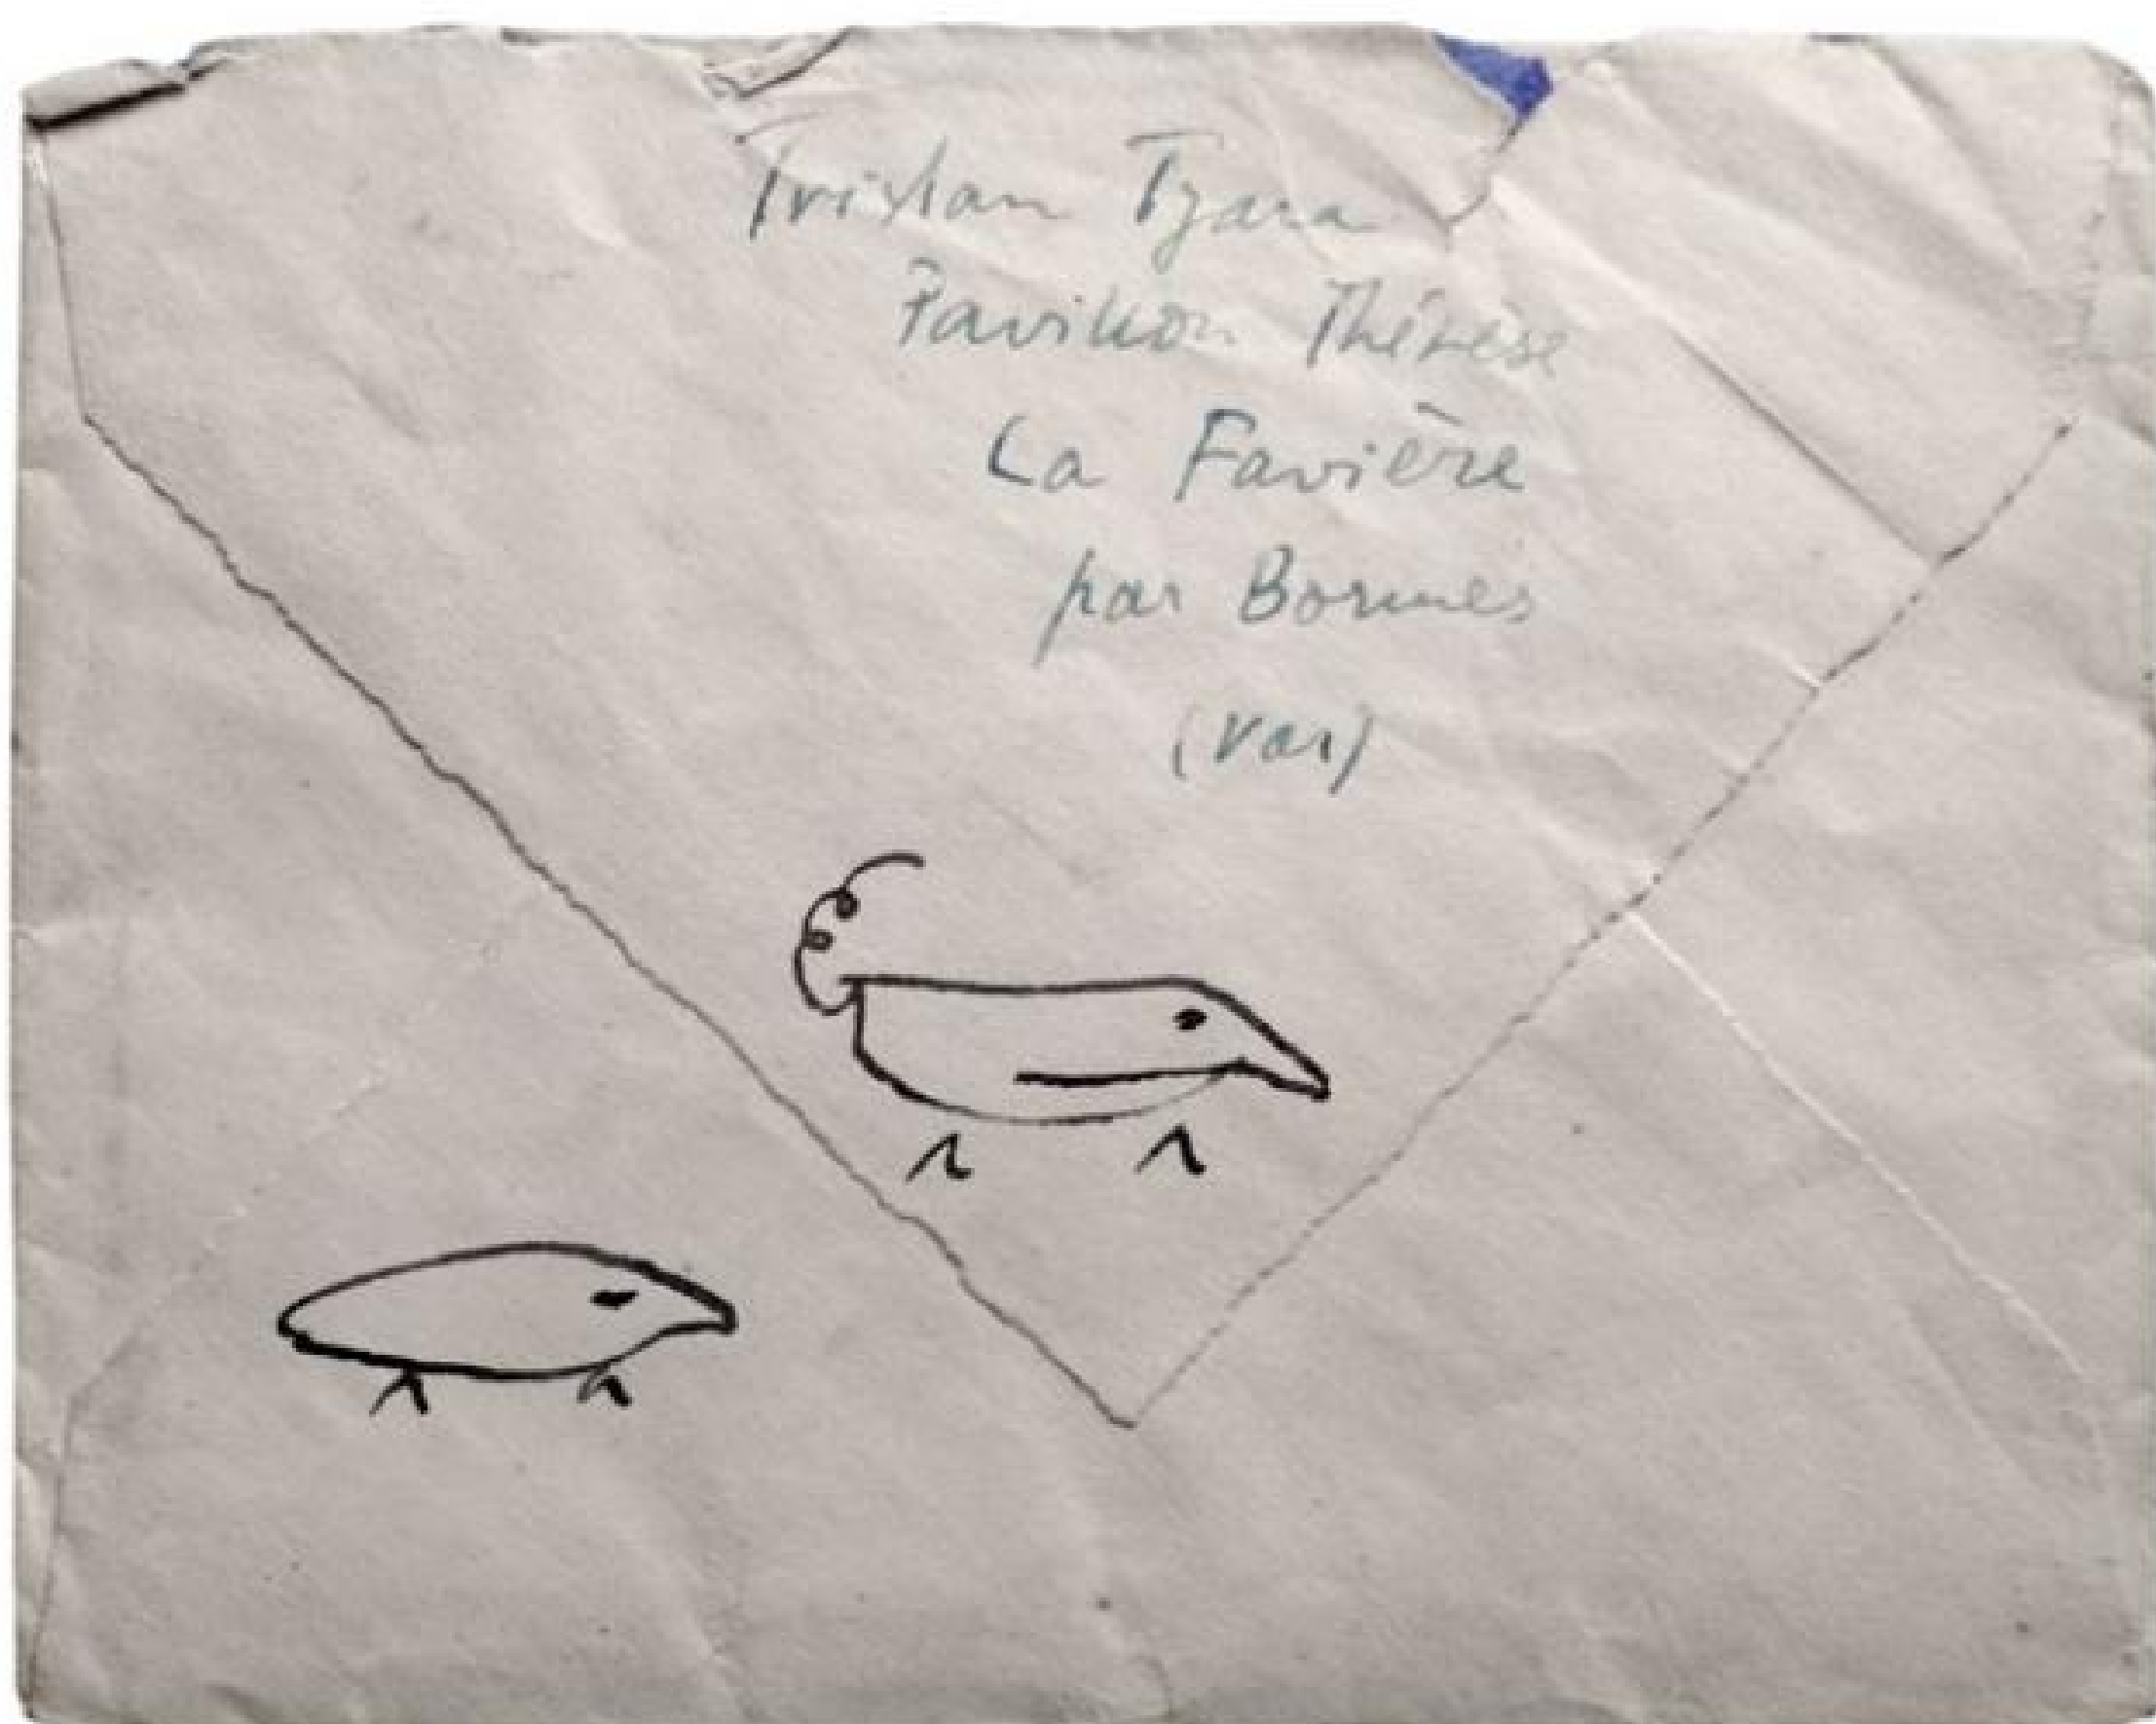 Tristan Tzara
Pavillon Thérèse
La Favière
par Bormes
(Var)